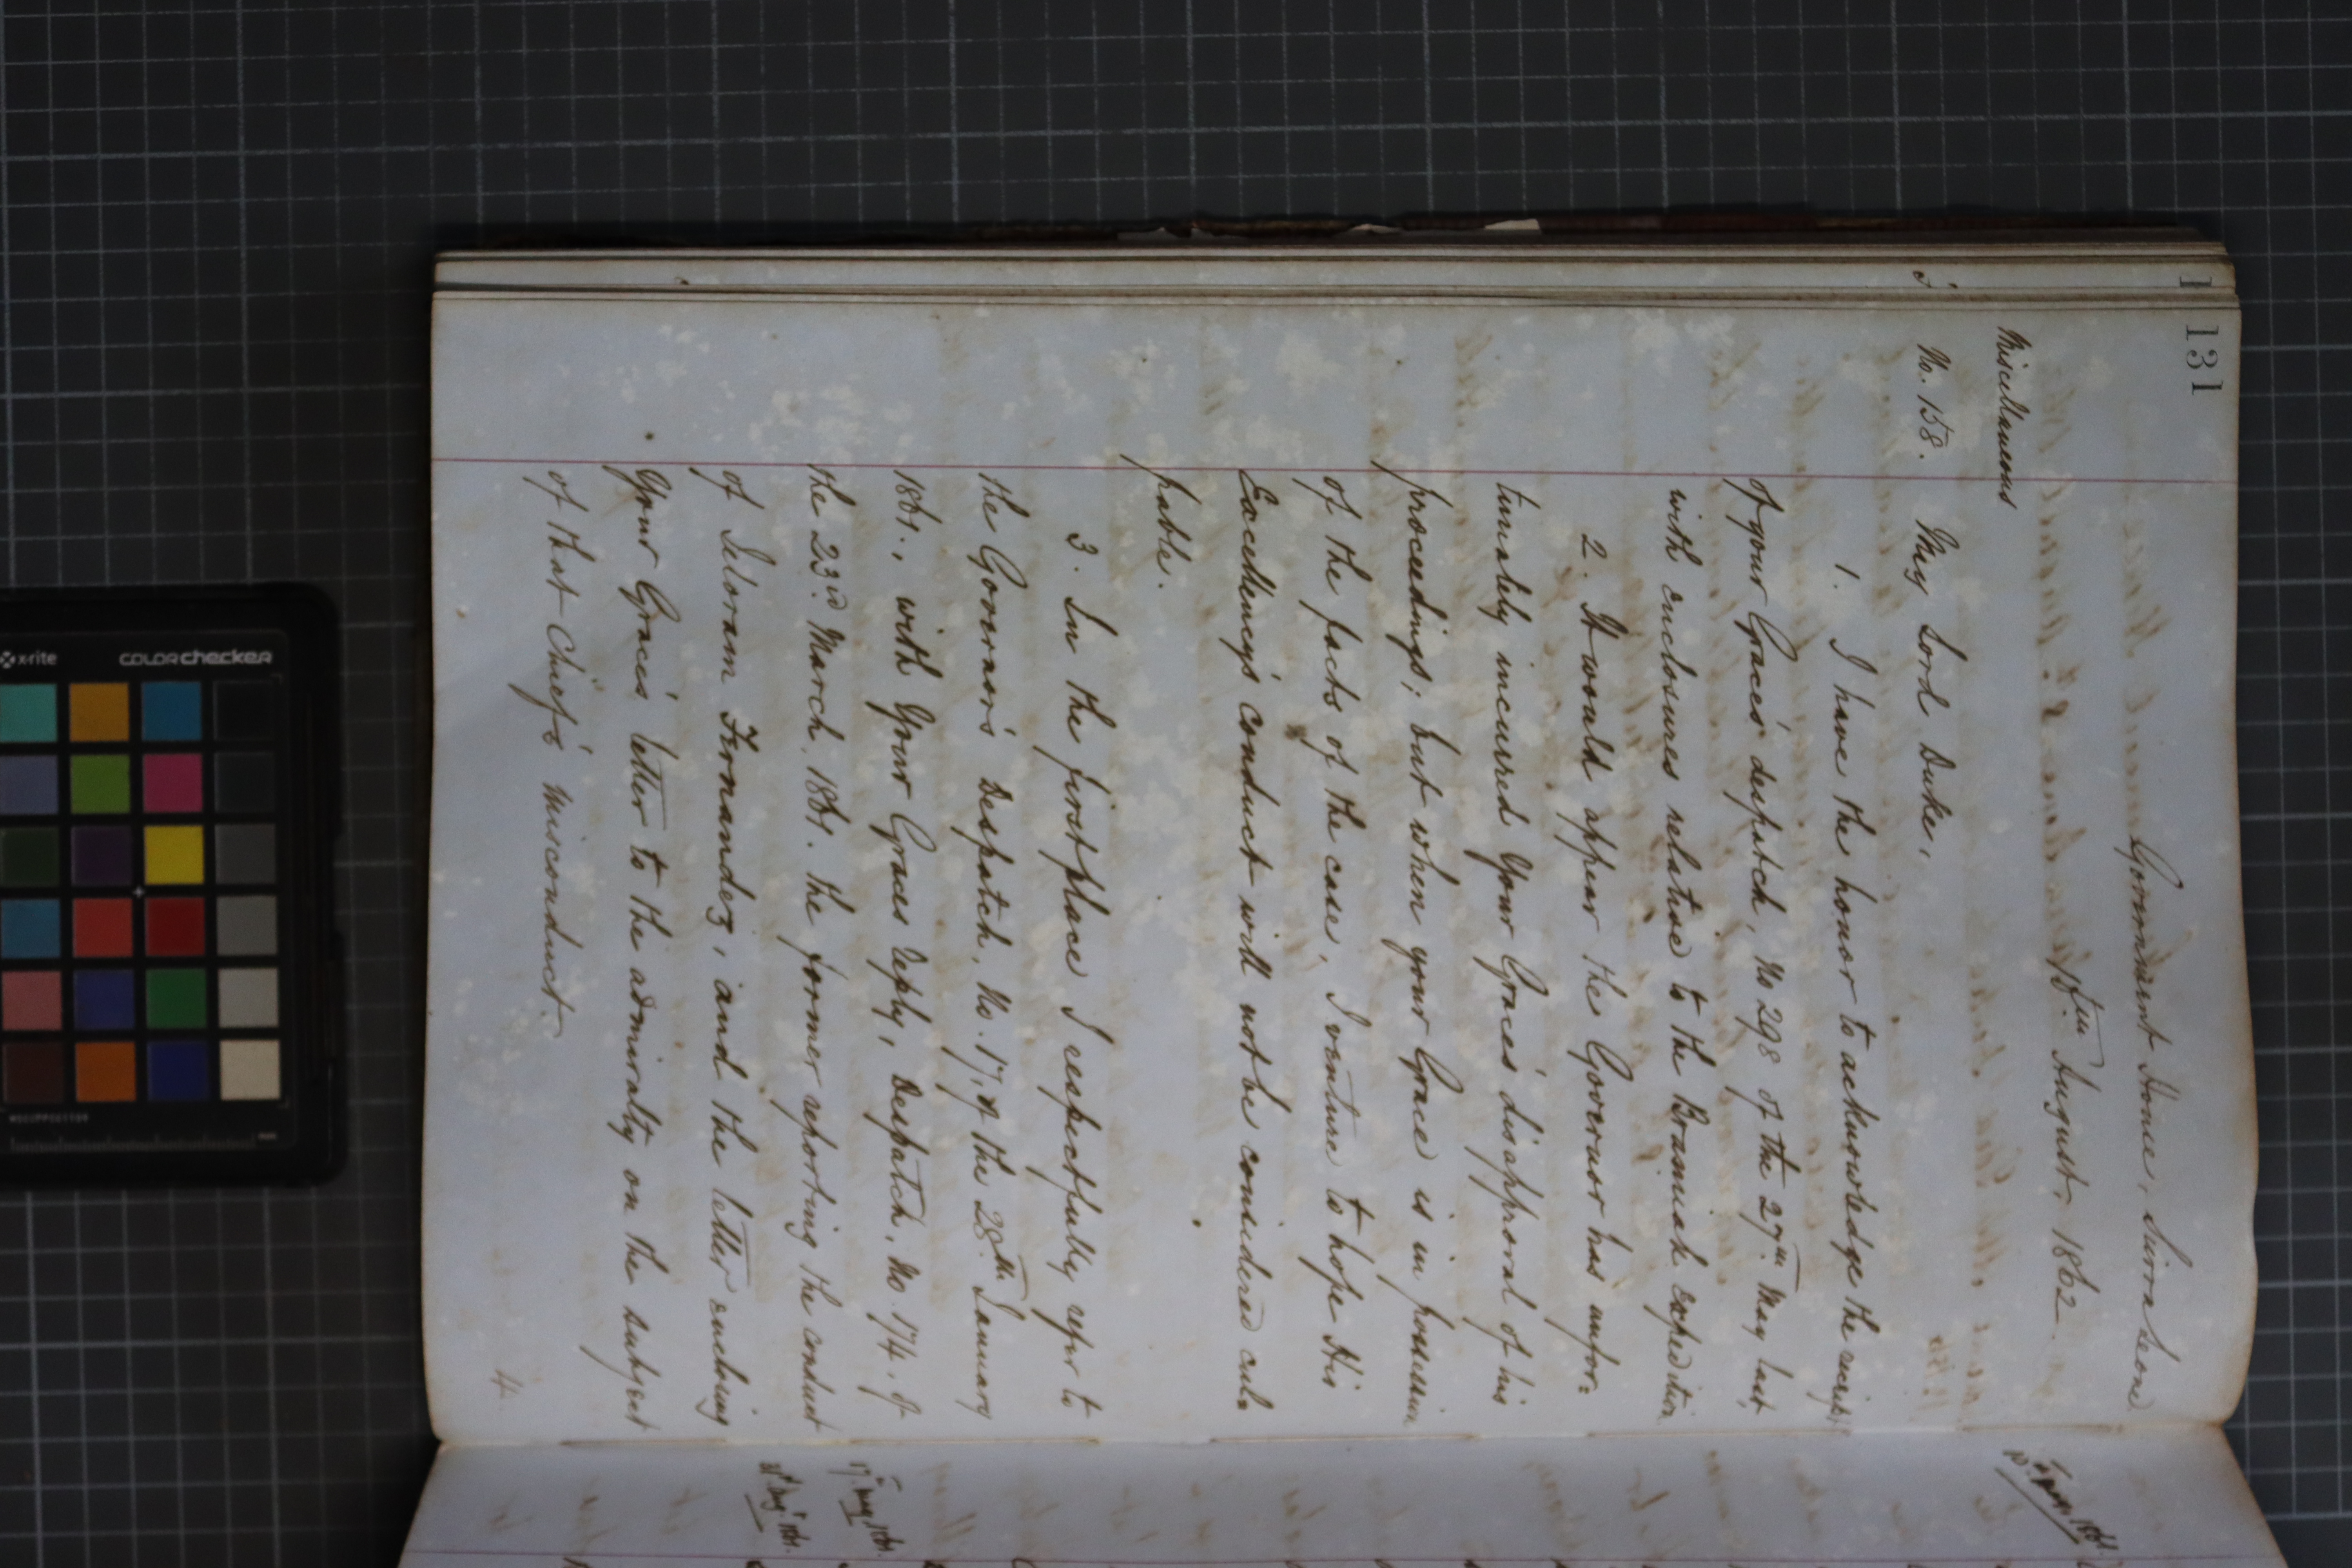 131
Government House, Sierra Leone
18th August, 1862.
Miscellaneous
No. 158.
My Lord Duke,
1. I have the honor to acknowledge the receipt
of your Grace's despatch, No 298 of the 27th May last,
with enclosures relative to the Bramiah expedition
2. It would appear the Governor has unfor=
tunately incurred Your Grace's disapproval of his
proceedings; but when your Grace is in possession
of the facts of the case, I venture to hope His
Excellency's conduct will not be considered cul=
pable.
3. In the first place I respectfully refer to
the Governor's Despatch, No. 17, of the 28th January
1861., with Your Graces reply, Despatch, No. 174. of
the 23rd March, 1861. the former reporting the conduct
of Iloram Fernandez, and the letter enclosing
Your Grace's letter to the admiralty on the subject
of that Chief's misconduct
4
17th May, 1861.
x-rite
colorchecker